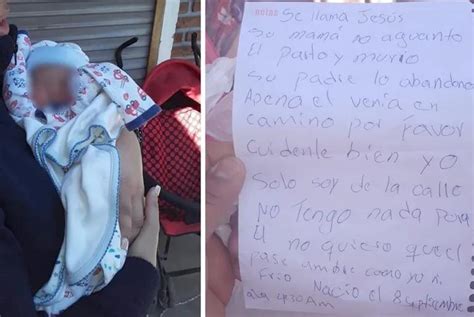 notas
Se llama Jesús
Su mamá no aguanto
El parto y murio
Su padre lo abandono
Apena el venía en
camino por favor
Cuidenle bien yo
Solo soy de la calle
NO Tengo nada para
el no quiero que el
pase ambre como yo ni
Frio Nacio el 8 septiembre